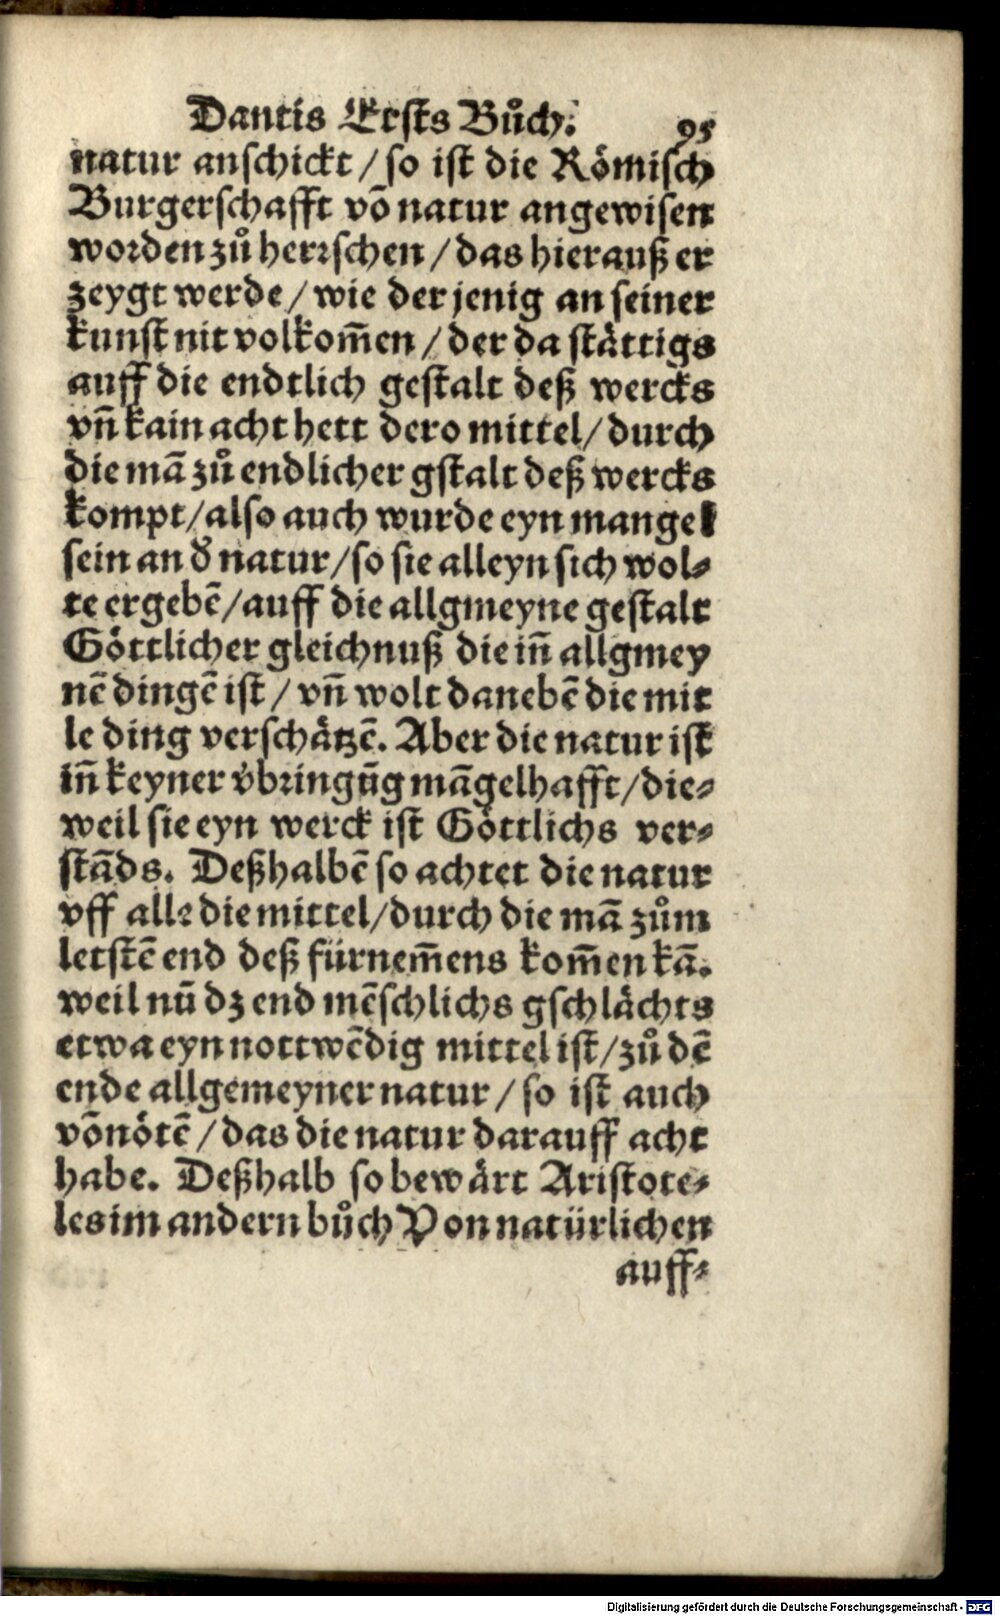 Dantis Erſts Bůch. 95
natur anſchickt / ſo iſt die Römiſch
Burgerſchafft võ natur angewiſen
worden zů herꝛſchen / das hierauß er
zeygt werde / wie der jenig an ſeiner
kunſt nit volkom̃en / der da ſtåttigs
auff die endtlich geſtalt deß wercks
vñ kain acht hett dero mittel / durch
die mã zů endlicher gſtalt deß wercks
kompt / alſo auch wurde eyn mangel
ſein an ð natur / ſo ſie alleyn ſich wol⸗
te ergebẽ / auff die allgmeyne geſtalt
Göttlicher gleichnuß die iñ allgmey
nẽ dingẽ iſt / vñ wolt danebẽ die mit
le ding verſchåtzẽ. Aber die natur iſt
iñ keyner v̈bringũg mãgelhafft / die⸗
weil ſie eyn werck iſt Göttlichs ver⸗
ſtãds. Deßhalbẽ ſo achtet die natur
vff alle die mittel / durch die mã zům
letſtẽ end deß fürnem̃ens kom̃en kã.
weil nũ dz end mẽſchlichs gſchlåchts
etwa eyn nottwẽdig mittel iſt / zů dẽ
ende allgemeyner natur / ſo iſt auch
võnötẽ / das die natur darauff acht
habe. Deßhalb ſo bewårt Ariſtote⸗
les im andern bůch Von natürlichen
auff⸗
Digitalisierung gefördert durch die Deutsche Forschungsgemeinschaft - DFG